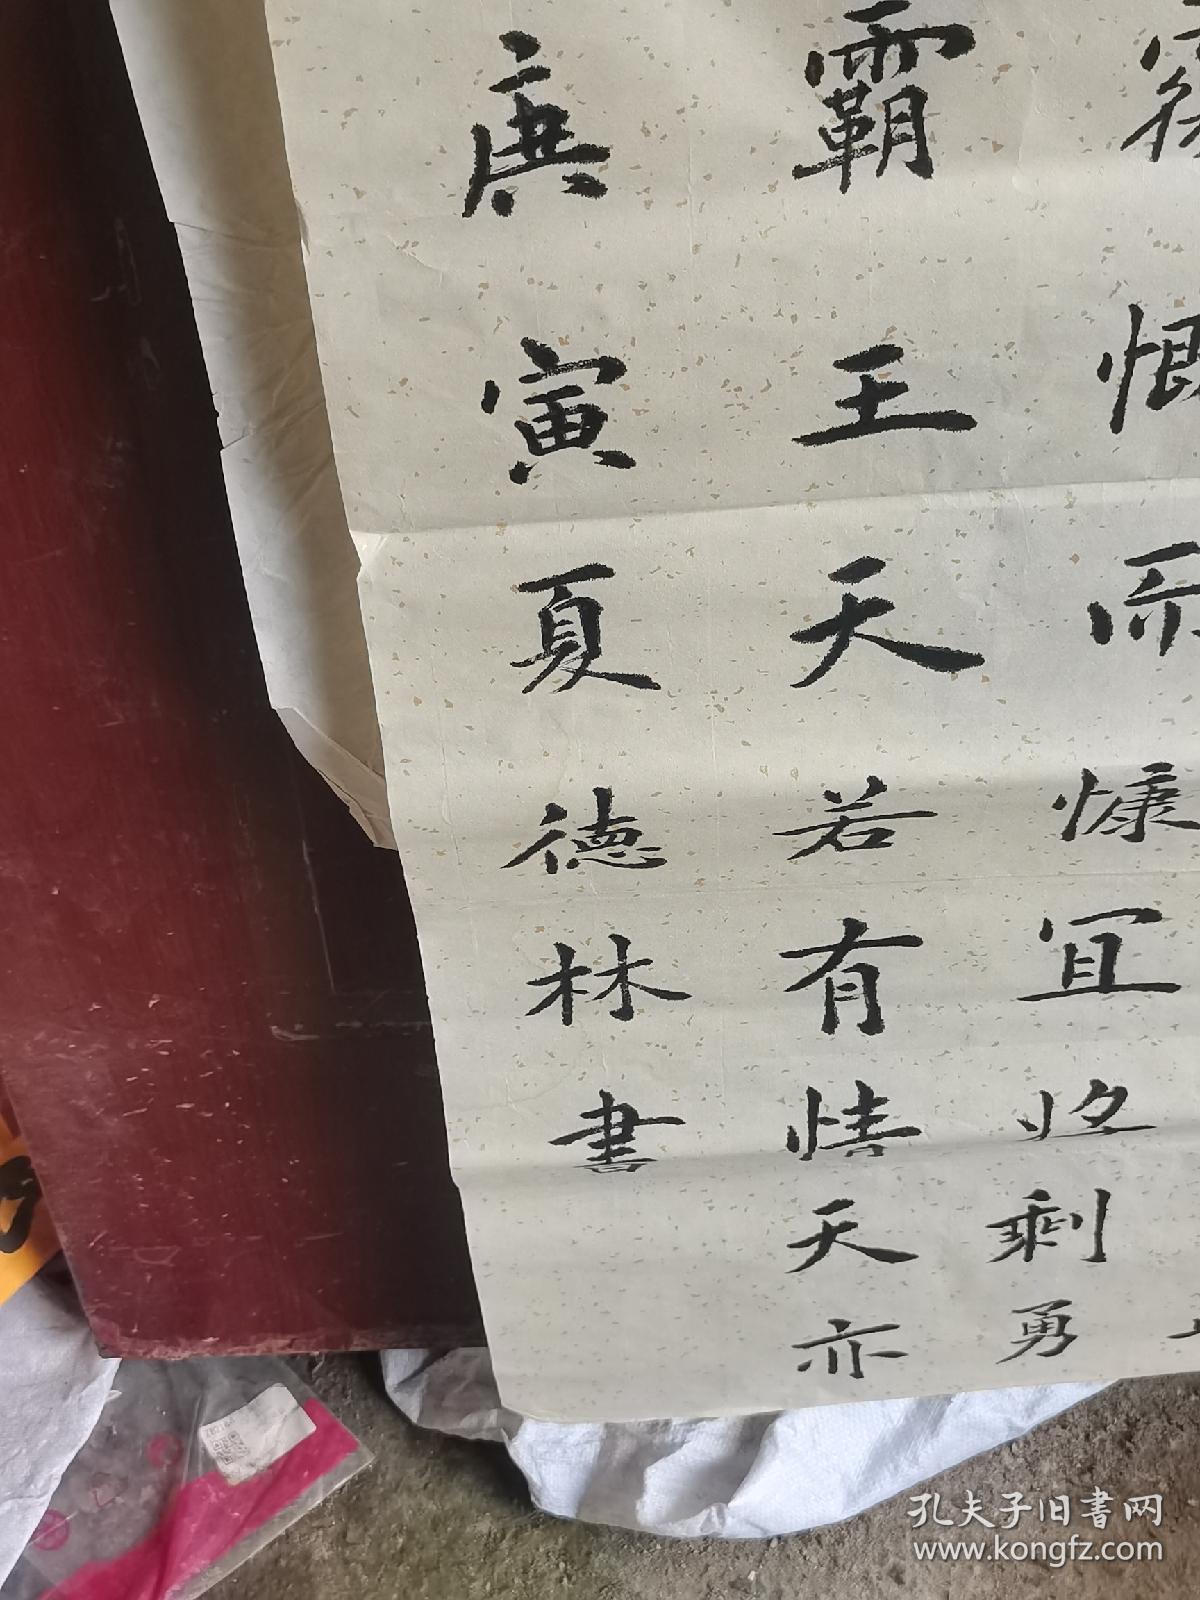 覆慨而慷宜将剩勇
霸王天若有情天亦
庚寅夏德林書
孔夫子旧書网
www.kongfz.com